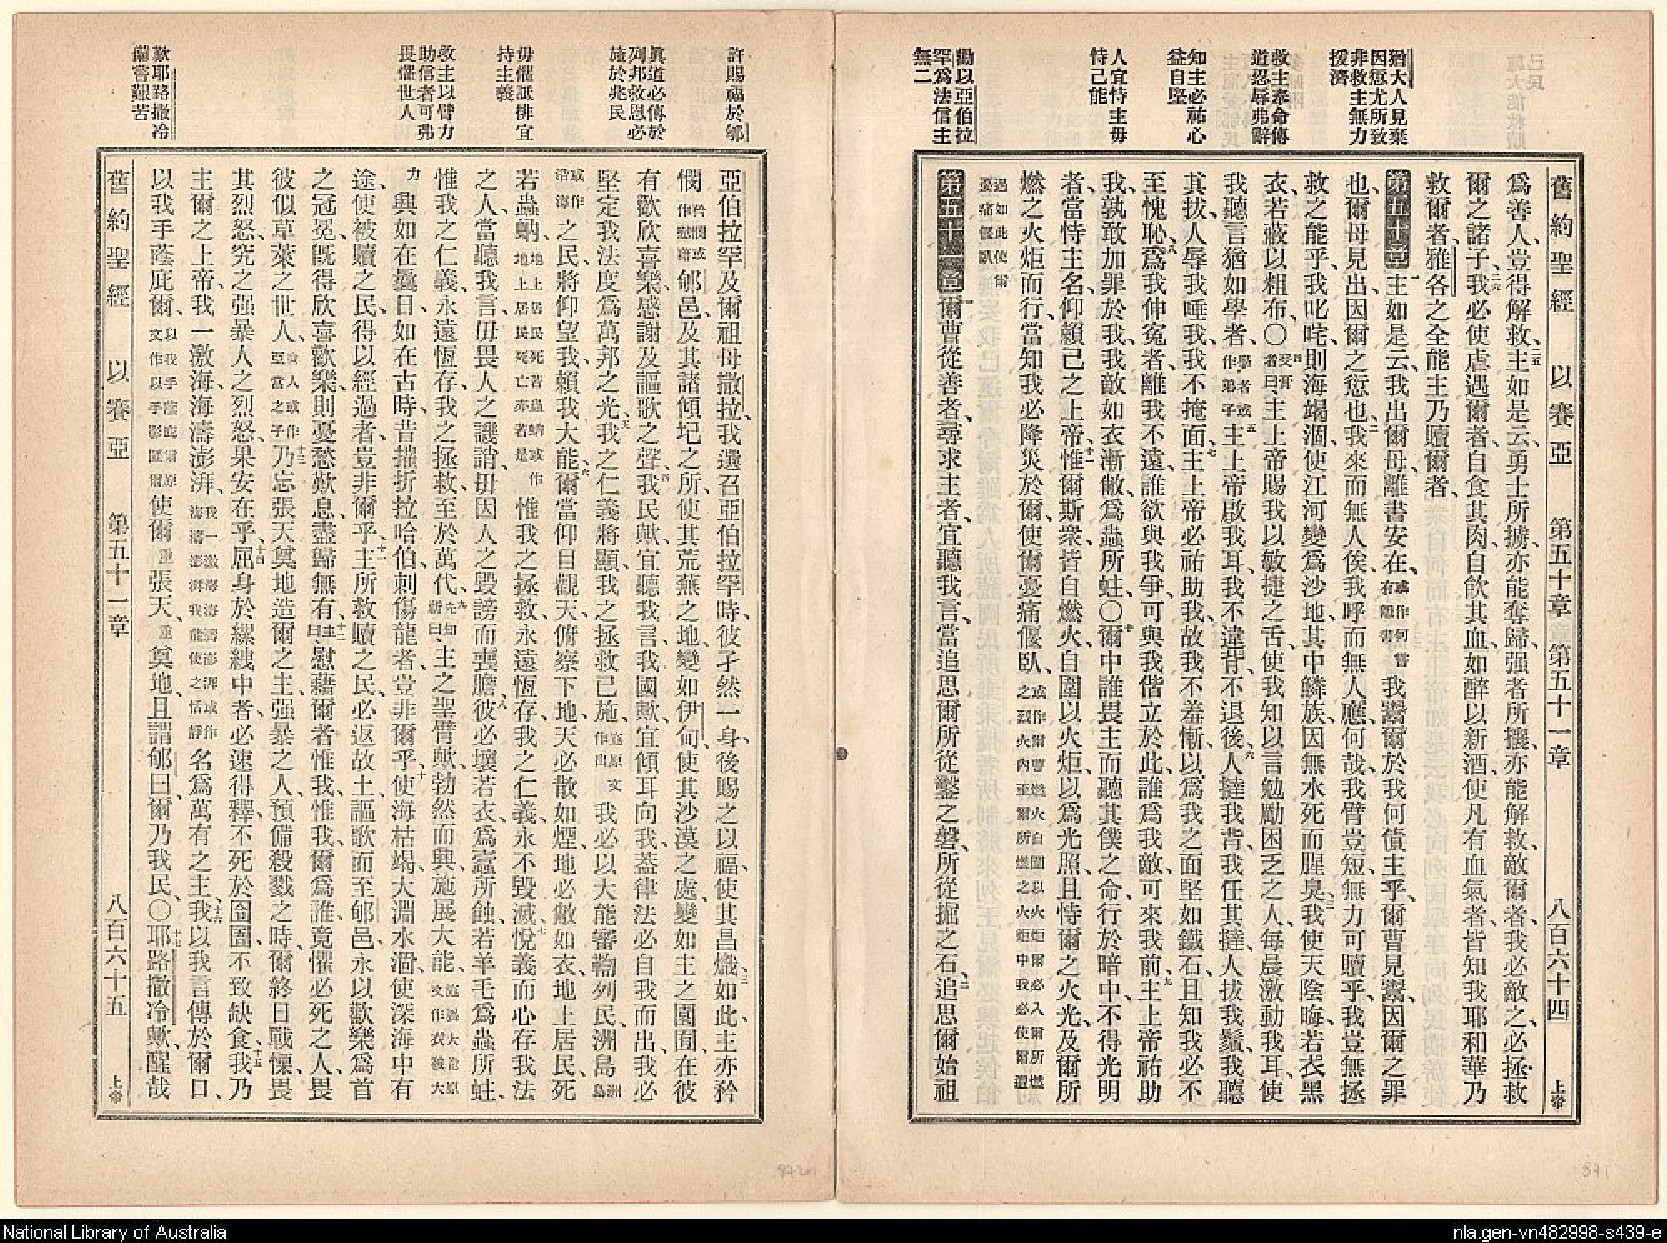 舊約聖經 以賽亞 第五十章 第五十一章 八百六十四 上帝
猶大人見棄
因愆尤所致
非救主無力
援濟
救主奉命傳
道忍辱弗辭
知主必祐心
益自堅
人宜恃主毋
恃己能
勸以亞伯拉
罕爲法信主
無二
爲善人、豈得解救、主如是云、勇士所擄、亦能奪歸、强者所攘、亦能解救、敵爾者、我必敵之、必拯救
爾之諸子、我必使虐遇爾者、自食其肉、自飲其血、如醉以新酒、使凡有血氣者、皆知我耶和華乃
救爾者、雅各之全能主、乃贖爾者、
第五十章 主如是云、我出爾母、離書安在、或作何嘗有離書 我鬻爾於我何債主乎、爾曹見鬻、因爾之罪
也、爾母見出、因爾之愆也、我來而無人俟、我呼而無人應、何哉、我臂豈短、無力可贖乎、我豈無拯
救之能乎、我叱咤、則海竭涸、使江河變爲沙地、其中鱗族、因無水死而腥臭、我使天陰晦、若衣黑
衣、若蔽以粗布、〇受膏者曰主上帝賜我以敏捷之舌、使我知以言勉勵困乏之人、每晨激動我耳、使
我聽言猶如學者、學者或作弟子 主上帝啟我耳、我不違背、不退後、人撻我背、我任其撻、人拔我鬚、我聽
其拔、人辱我唾我、我不掩面、主上帝必祐助我、故我不羞慚、以爲我之面堅如鐵石、且知我必不
至愧恥、爲我伸寃者、離我不遠、誰欲與我爭、可與我偕立於此、誰爲我敵、可來我前、主上帝祐助
我、孰敢加罪於我、我敵如衣漸敝、爲蟲所蛀、〇爾中誰畏主而聽其僕之命、行於暗中、不得光明
者、當恃主名、仰賴己之上帝、惟爾斯衆、皆自燃火、自圍以火炬、以爲光照、且恃爾之火光、及爾所
燃之火炬而行、當知我必降災於爾、使爾憂痛偃臥、
第五十一章 爾曹從善者、尋求主者、宜聽我言、當追思爾所從鑿之磐、所從掘之石、追思爾始祖
許賜福於郇
眞道必傳於
列邦救恩必
施於兆民
毋懼詆誹宜
持主義
救主以臂力
助信者可弗
畏懼世人
歎耶路撒冷
備嘗艱苦
亞伯拉罕、及爾祖母撒拉、我選召亞伯拉罕時、彼孑然一身、後賜之以福、使其昌熾、如此、主亦矜
憫 郇邑、及其諸傾圮之所、使其荒蕪之地、變如伊甸、使其沙漠之處、變如主之園囿、在彼
有歡欣喜樂、感謝及謳歌之聲、我民歟、宜聽我言、我國歟、宜傾耳向我、蓋律法必自我而出、我必
堅定我法度、爲萬邦之光、我之仁義將顯、我之拯救已施、施原文作出 我必以大能審鞫列民、洲島 洲島
或作沿海 之民、將仰望我、賴我大能、爾當仰目觀天、俯察下地、天必散如煙、地必敝如衣、地上居民死
若蟲蚋、地上居民死若蟲蚋或作地上居民死亡亦若是 惟我之拯救、永遠恆存、我之仁義、永不毀滅、悅義而心存我法
之人、當聽我言、毋畏人之譏誚、毋因人之毀謗而喪膽、彼必壞若衣、爲蠹所蝕、若羊毛爲蟲所蛀、
惟我之仁義、永遠恆存、我之拯救、至於萬代、先知祈曰主之聖臂歟、勃然而興、施展大能、施展大能原文作衣被大
力 興如在曩日、如在古時、昔摧折拉哈伯、刺傷龍者、豈非爾乎、使海枯竭、大淵水涸、使深海中有
途、使被贖之民、得以經過者、豈非爾乎、主所救贖之民必返故土、謳歌而至郇邑、永以歡樂爲首
之冠冕、旣得欣喜歡樂、則憂愁歎息、盡歸無有、主曰慰藉爾者、惟我惟我、爾爲誰、竟懼必死之人、畏
彼似草萊之世人、世人或作亞當之子 乃忘張天奠地造爾之主、强暴之人、預備殺戮之時、爾終日戰慄、畏
其烈怒、究之强暴人之烈怒、果安在乎、屈身於縲絏中者、必速得釋、不死於囹圄、不致缺食、我乃
主爾之上帝、我一激海、海濤澎湃、我一激海海濤澎湃或作海濤澎湃我能使之恬靜 名爲萬有之主、我以我言傳於爾口、
以我手蔭庇爾、以我手蔭庇爾原文作以手影匿爾 使爾重張天、重奠地、且謂郇曰、爾乃我民、〇耶路撒冷歟、醒哉
舊約聖經 以賽亞 第五十一章 八百六十五 上帝
National Library of Australia
nla.gen-vn482998-s439-e